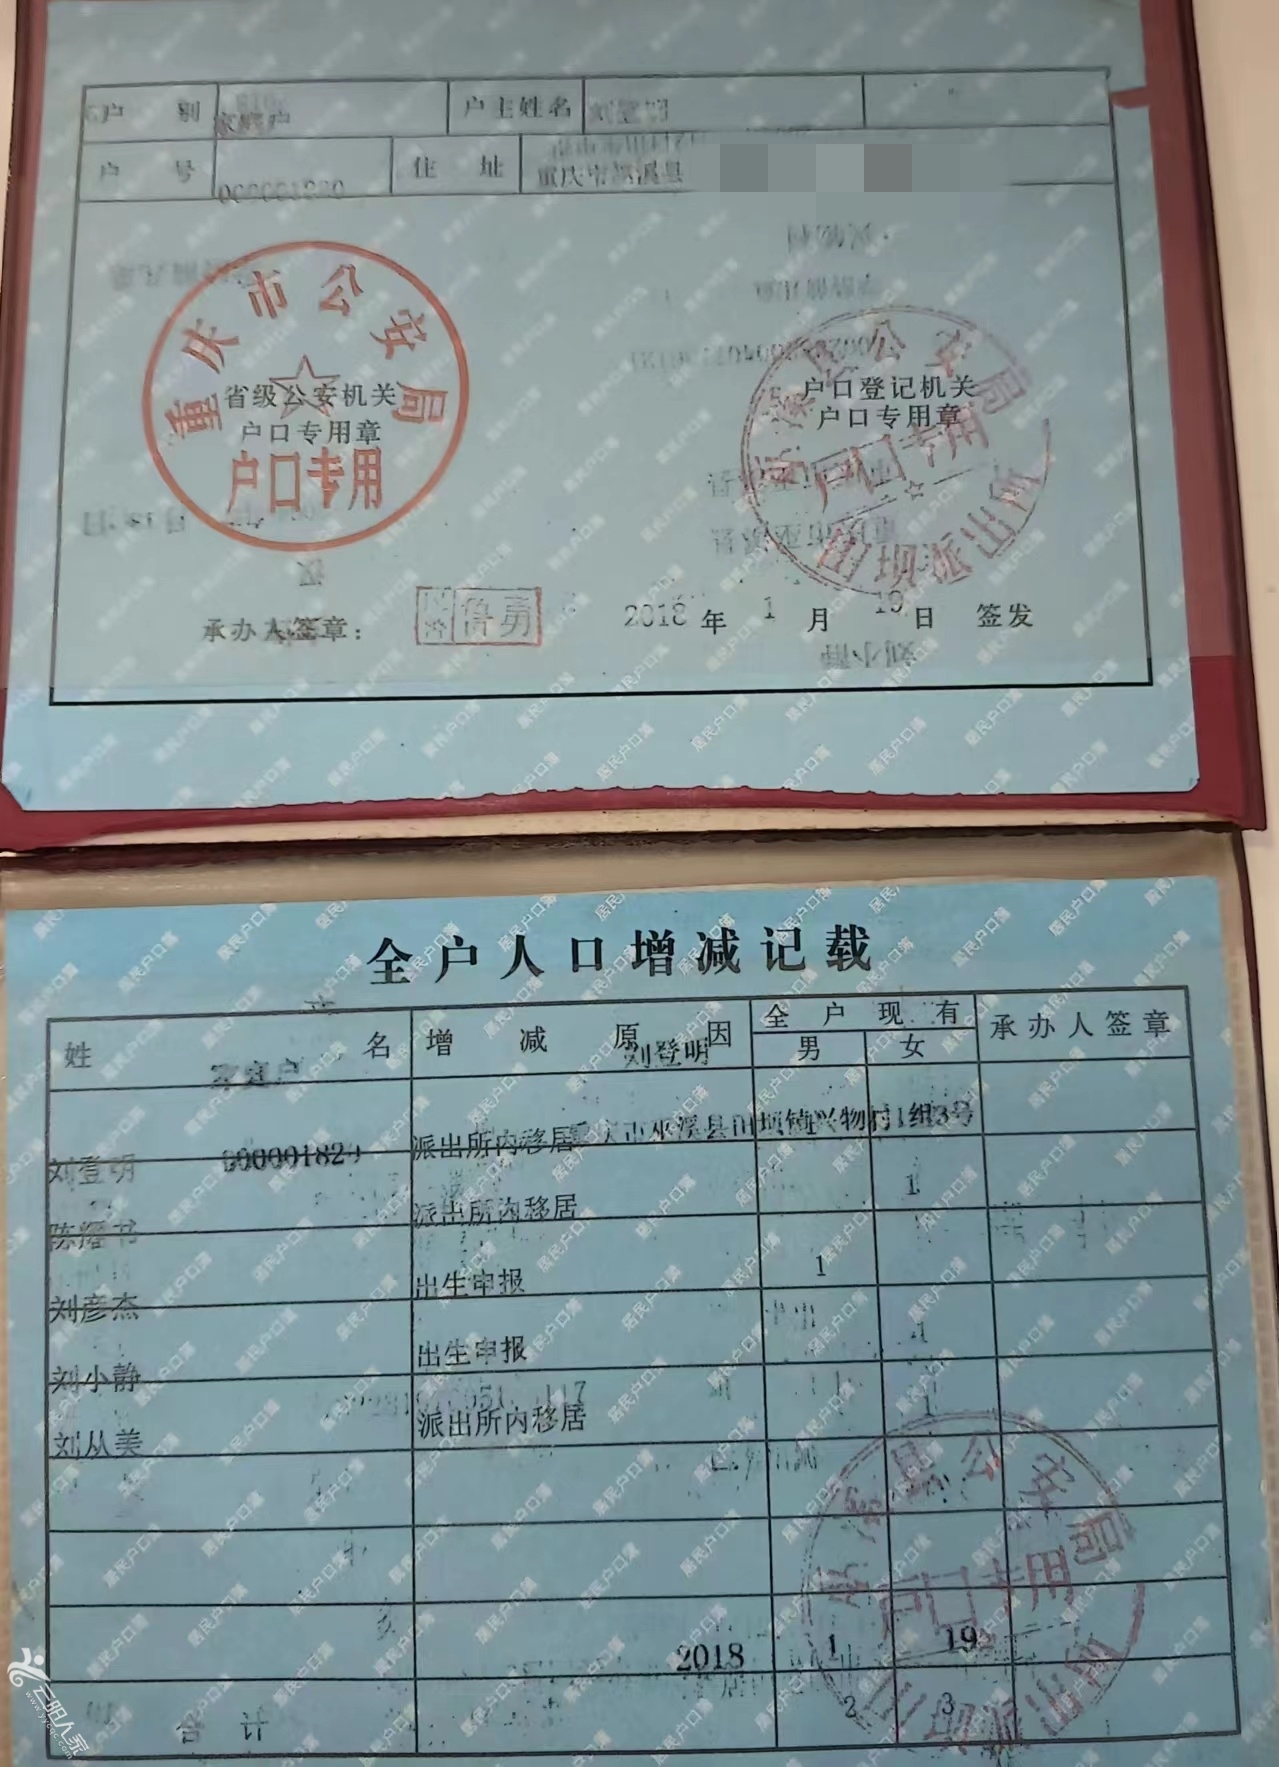 户 别 家庭户 户主姓名
户 号 住 址 重庆市巫溪县
重庆市公安局
省级公安机关
户口专用章
户口专用
公安局
户口登记机关
户口专用章
户口专用
田坝派出所
承办人签章：
鲁勇
2018 年 1 月 19 日 签发
全户人口增减记载
姓 名 增 减 原 因 全 户 现 有 承办人签章
男 女
家庭户 刘登明
000001829 巫溪县田坝镇兴物村1组3号
刘登明 派出所内移居
陈 书 派出所内移居 1
刘彦杰 出生申报 1
刘小静 出生申报 1
刘从美 派出所内移居 1
县公安局
户口专用
2018 1 19
合 计 2 3
云阳人家
www.yycqc.com
居民户口簿